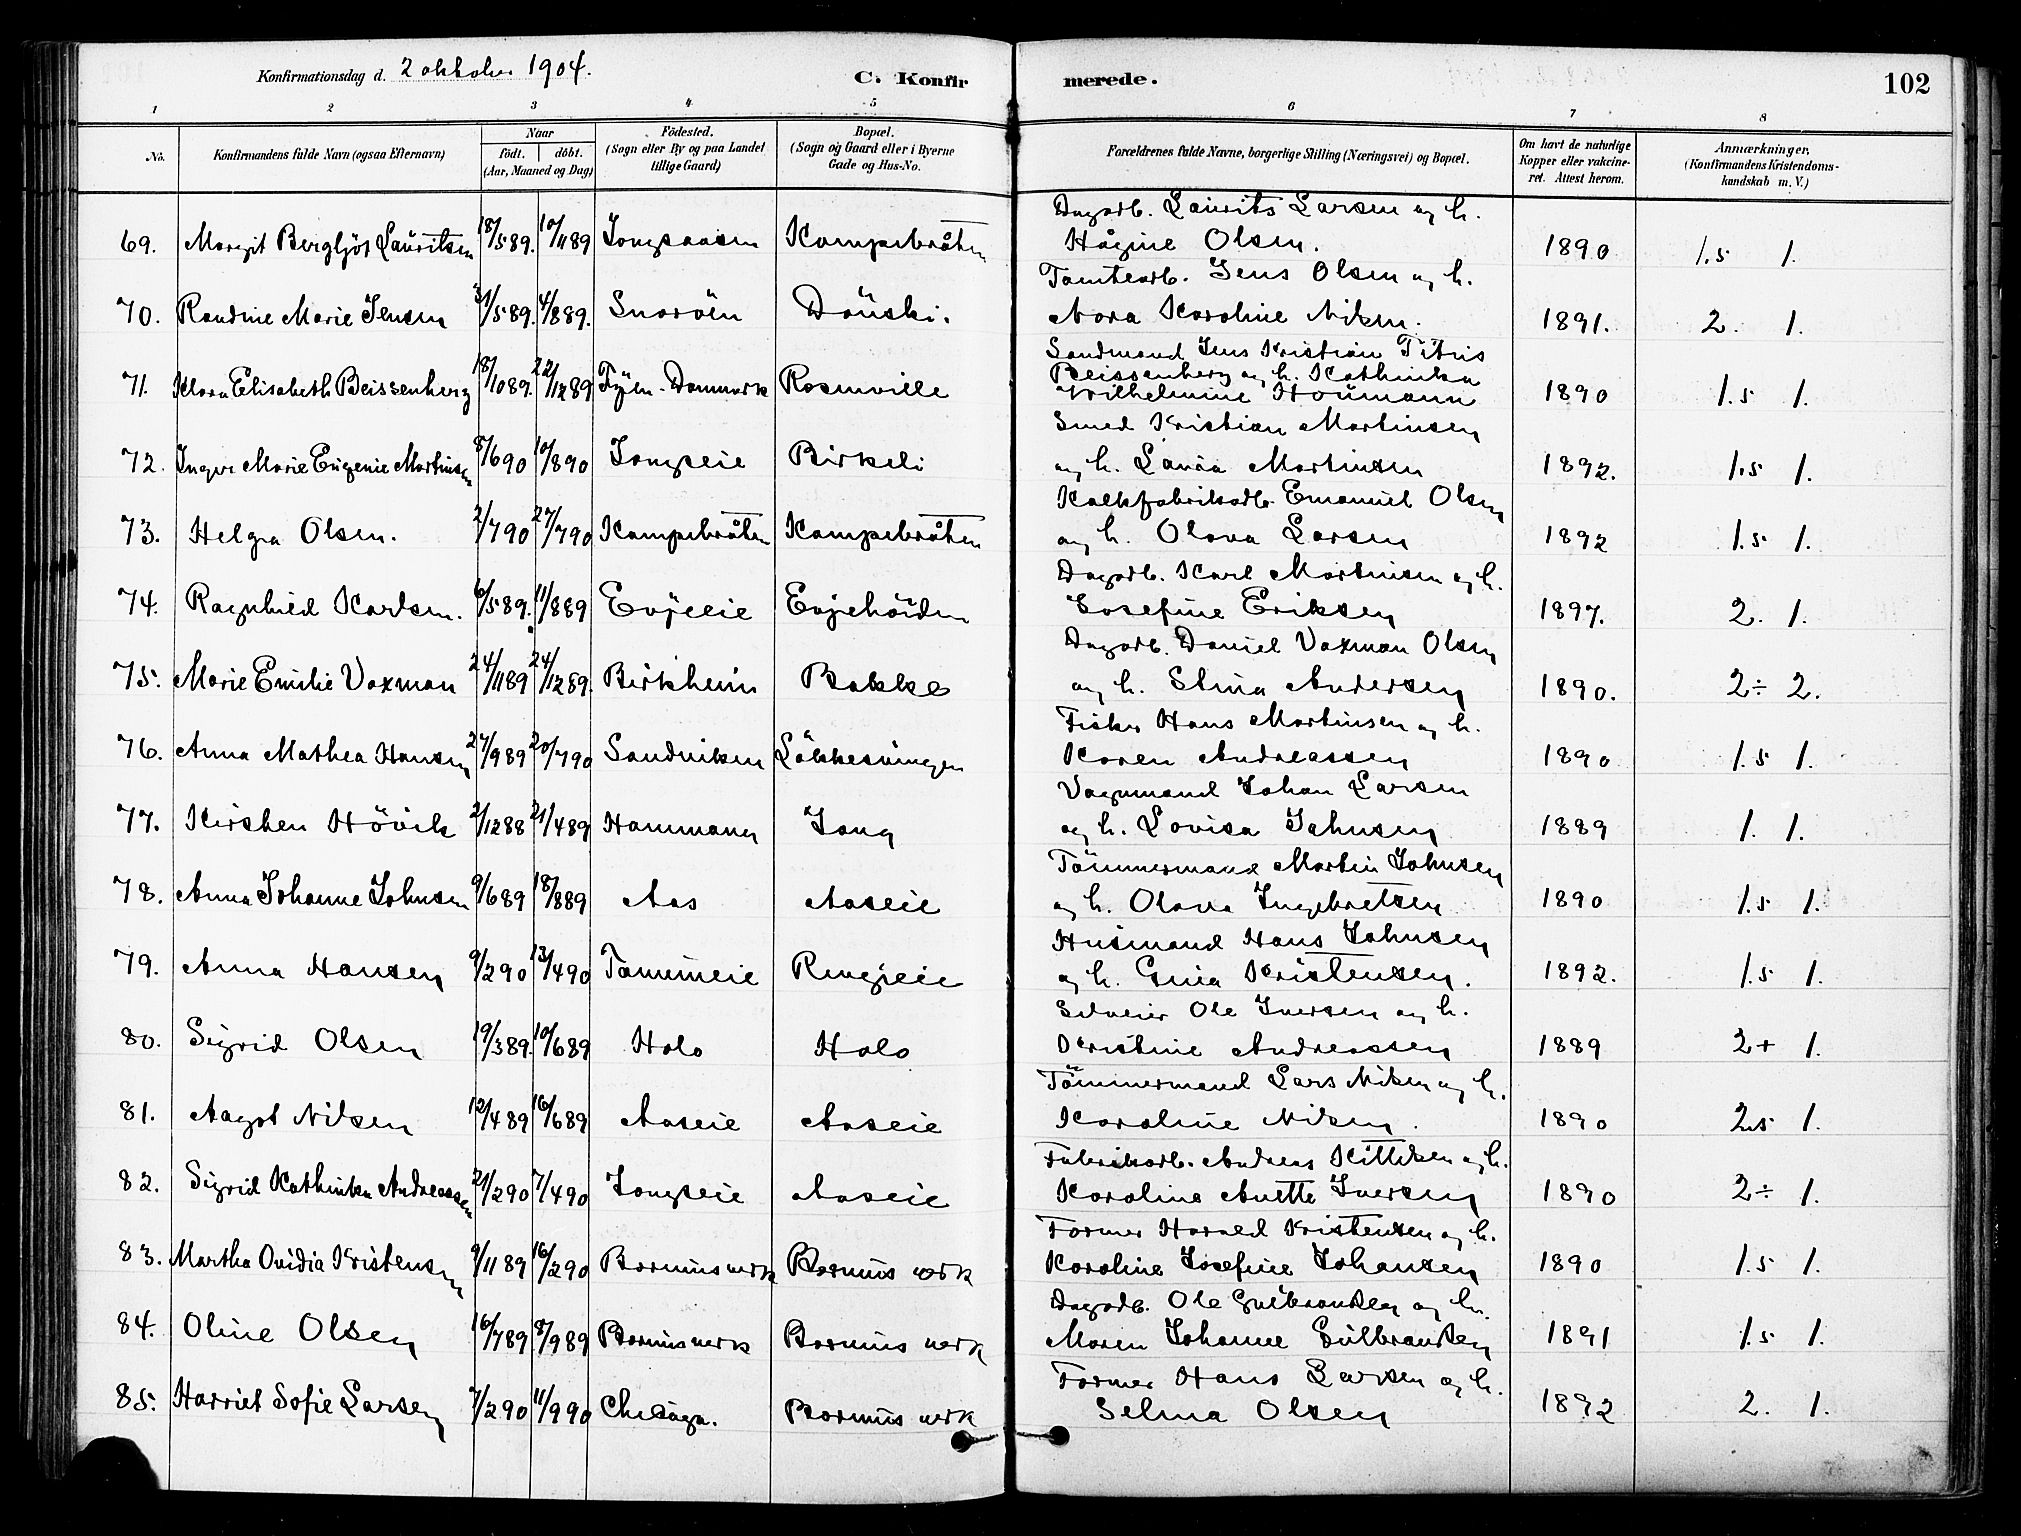 Konfirmationsdag d. 2 oktober 1904.
C. Konfir merede.
102
1 2 3 4 5 6 7 8
No. Konfirmandens fulde Navn (ogsaa Efternavn) Naar födt. döbt. (Aar, Maaned og Dag) Födested. (Sogn eller By og paa Landet tillige Gaard) Bopæl. (Sogn og Gaard eller i Byerne Gade og Hus-No. Forældrenes fulde Navne, borgerlige Stilling (Næringsvei) og Bopæl. Om havt de naturlige Kopper eller vakcineret. Attest herom. Anmærkninger. (Konfirmandens Kristendomskundskab m. V.)
69. Margit Bergljot Lauritsen 18/5 89. 10/11 89 Jongsaasen Kampebråten Dagarb. Laurits Larsen og h. Hågine Olsen. 1890 1.5 1.
70. Randine Marie Jensen 31/5 89. 4/8 89. Snaröen Dönski. Tomtearb. Jens Olsen og h. Nora Karoline Nilsen. 1891. 2. 1.
71. Klara Elisabeth Beissenherz 18/10 89. 22/12 89 Fyen. Danmark Rosenville Sandmand Jens Kristian Titus Beissenherz og h. Kathinka Wilhelmine Houmann 1890 1.5 1.
72. Inger Marie Eugenie Martinsen 8/6 90 10/8 90 Jongseie Birkeli Smed Kristian Martinsen og h. Laura Martinsen 1892. 1.5 1.
73. Helga Olsen. 2/7 90 27/7 90 Kampebråten Kampebråten Kalkfabrikarb. Emanuel Olsen og h. Olava Larsen 1892 1.5 1.
74. Ragnhild Karlsen. 6/5 89. 11/8 89 Evjeeie Evjehöiden Dagarb. Karl Martinsen og h. Josefine Eriksen 1897. 2. 1.
75. Marie Emilie Vaxman 24/11 89 24/12 89. Birkheim Bakke Dagarb. Daniel Vaxman Olsen og h. Stina Andersen 1890. 2÷ 2.
76. Anna Mathea Hansen 27/9 89 20/7 90 Sandviken Lökkesvingen Fisker Hans Martinsen og h. Karen Andreassen 1890 1.5 1.
77. Kirsten Hövik 2/12 88 21/4 89 Hammang Jong Vognmand Johan Larsen og h. Lovisa Jahnsen 1889 1. 1.
78. Anna Johanne Johnsen 9/6 89 18/8 89 Aas Aaseie Tömmermand Martin Johnsen og h. Olava Ingebretsen 1890 1.5 1.
79. Anna Hansen 9/2 90 13/4 90 Tanumeie Ringieie Husmand Hans Johnsen og h. Gina Kristensen. 1892. 1.5 1.
80. Sigrid Olsen 19/3 89. 10/6 89 Holo Holo Selveier Ole Iversen og h. Kristine Andreassen 1889 2+ 1.
81. Aagot Nilsen 12/4 89 16/6 89 Aaseie Aaseie Tömmermand Lars Nilsen og h. Karoline Nilsen. 1890 2.5 1.
82. Sigrid Kathinka Andreassen 21/2 90 7/4 90 Jongseie Aaseie Fabrikarb. Andreas Kittilsen og h. Karoline Anette Iversen 1890 2÷ 1.
83. Martha Ovidia Kristensen 9/11 89 16/2 90 Bærumsverk Bærums verk Former Harald Kristensen og h. Karoline Josefine Johansen 1890 1.5 1.
84. Oline Olsen 16/7 89 8/9 89 Bærumsverk Bærums verk Dagarb. Ole Gulbrandsen og h. Maren Johanne Gulbrandsen 1891 1.5 1.
85. Harriet Sofie Larsen 7/2 90 11/9 90 Chikago. Bærums verk Former Hans Larsen og h. Selma Olsen 1892 2. 1.